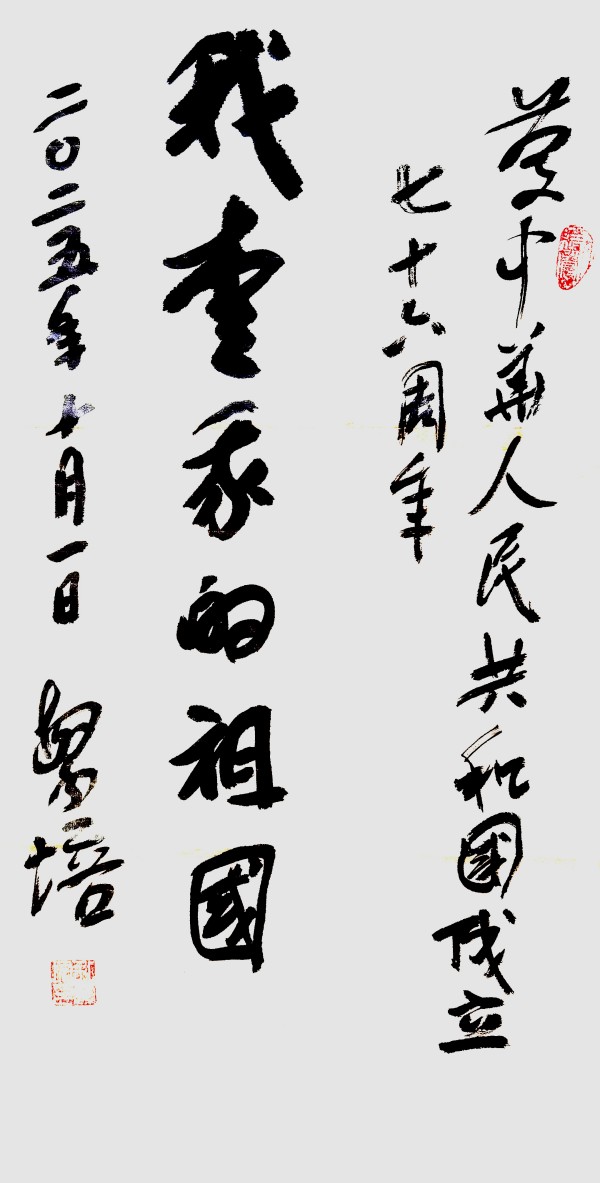 慶中華人民共和國成立
七十六周年
我愛我的祖國
二〇二五年十月一日 培